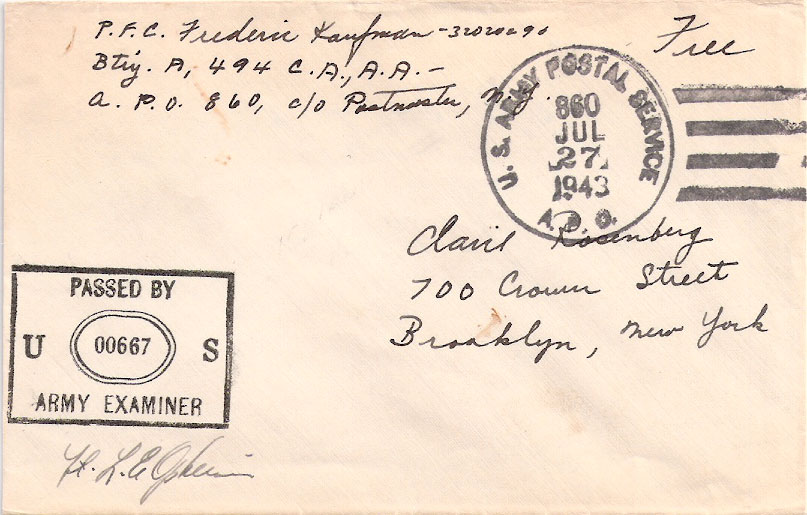 P.F.C. Frederic Kaufman - 32020690
Free
Btry. A, 494 C.A., A.A. -
A. P. O. 860, c/o Postmaster, N.Y.
U. S. ARMY POSTAL SERVICE
860
JUL
27
1943
A. P. O.
Rosenberg
700 Crown Street
Brooklyn, New York
PASSED BY
U 00667 S
ARMY EXAMINER